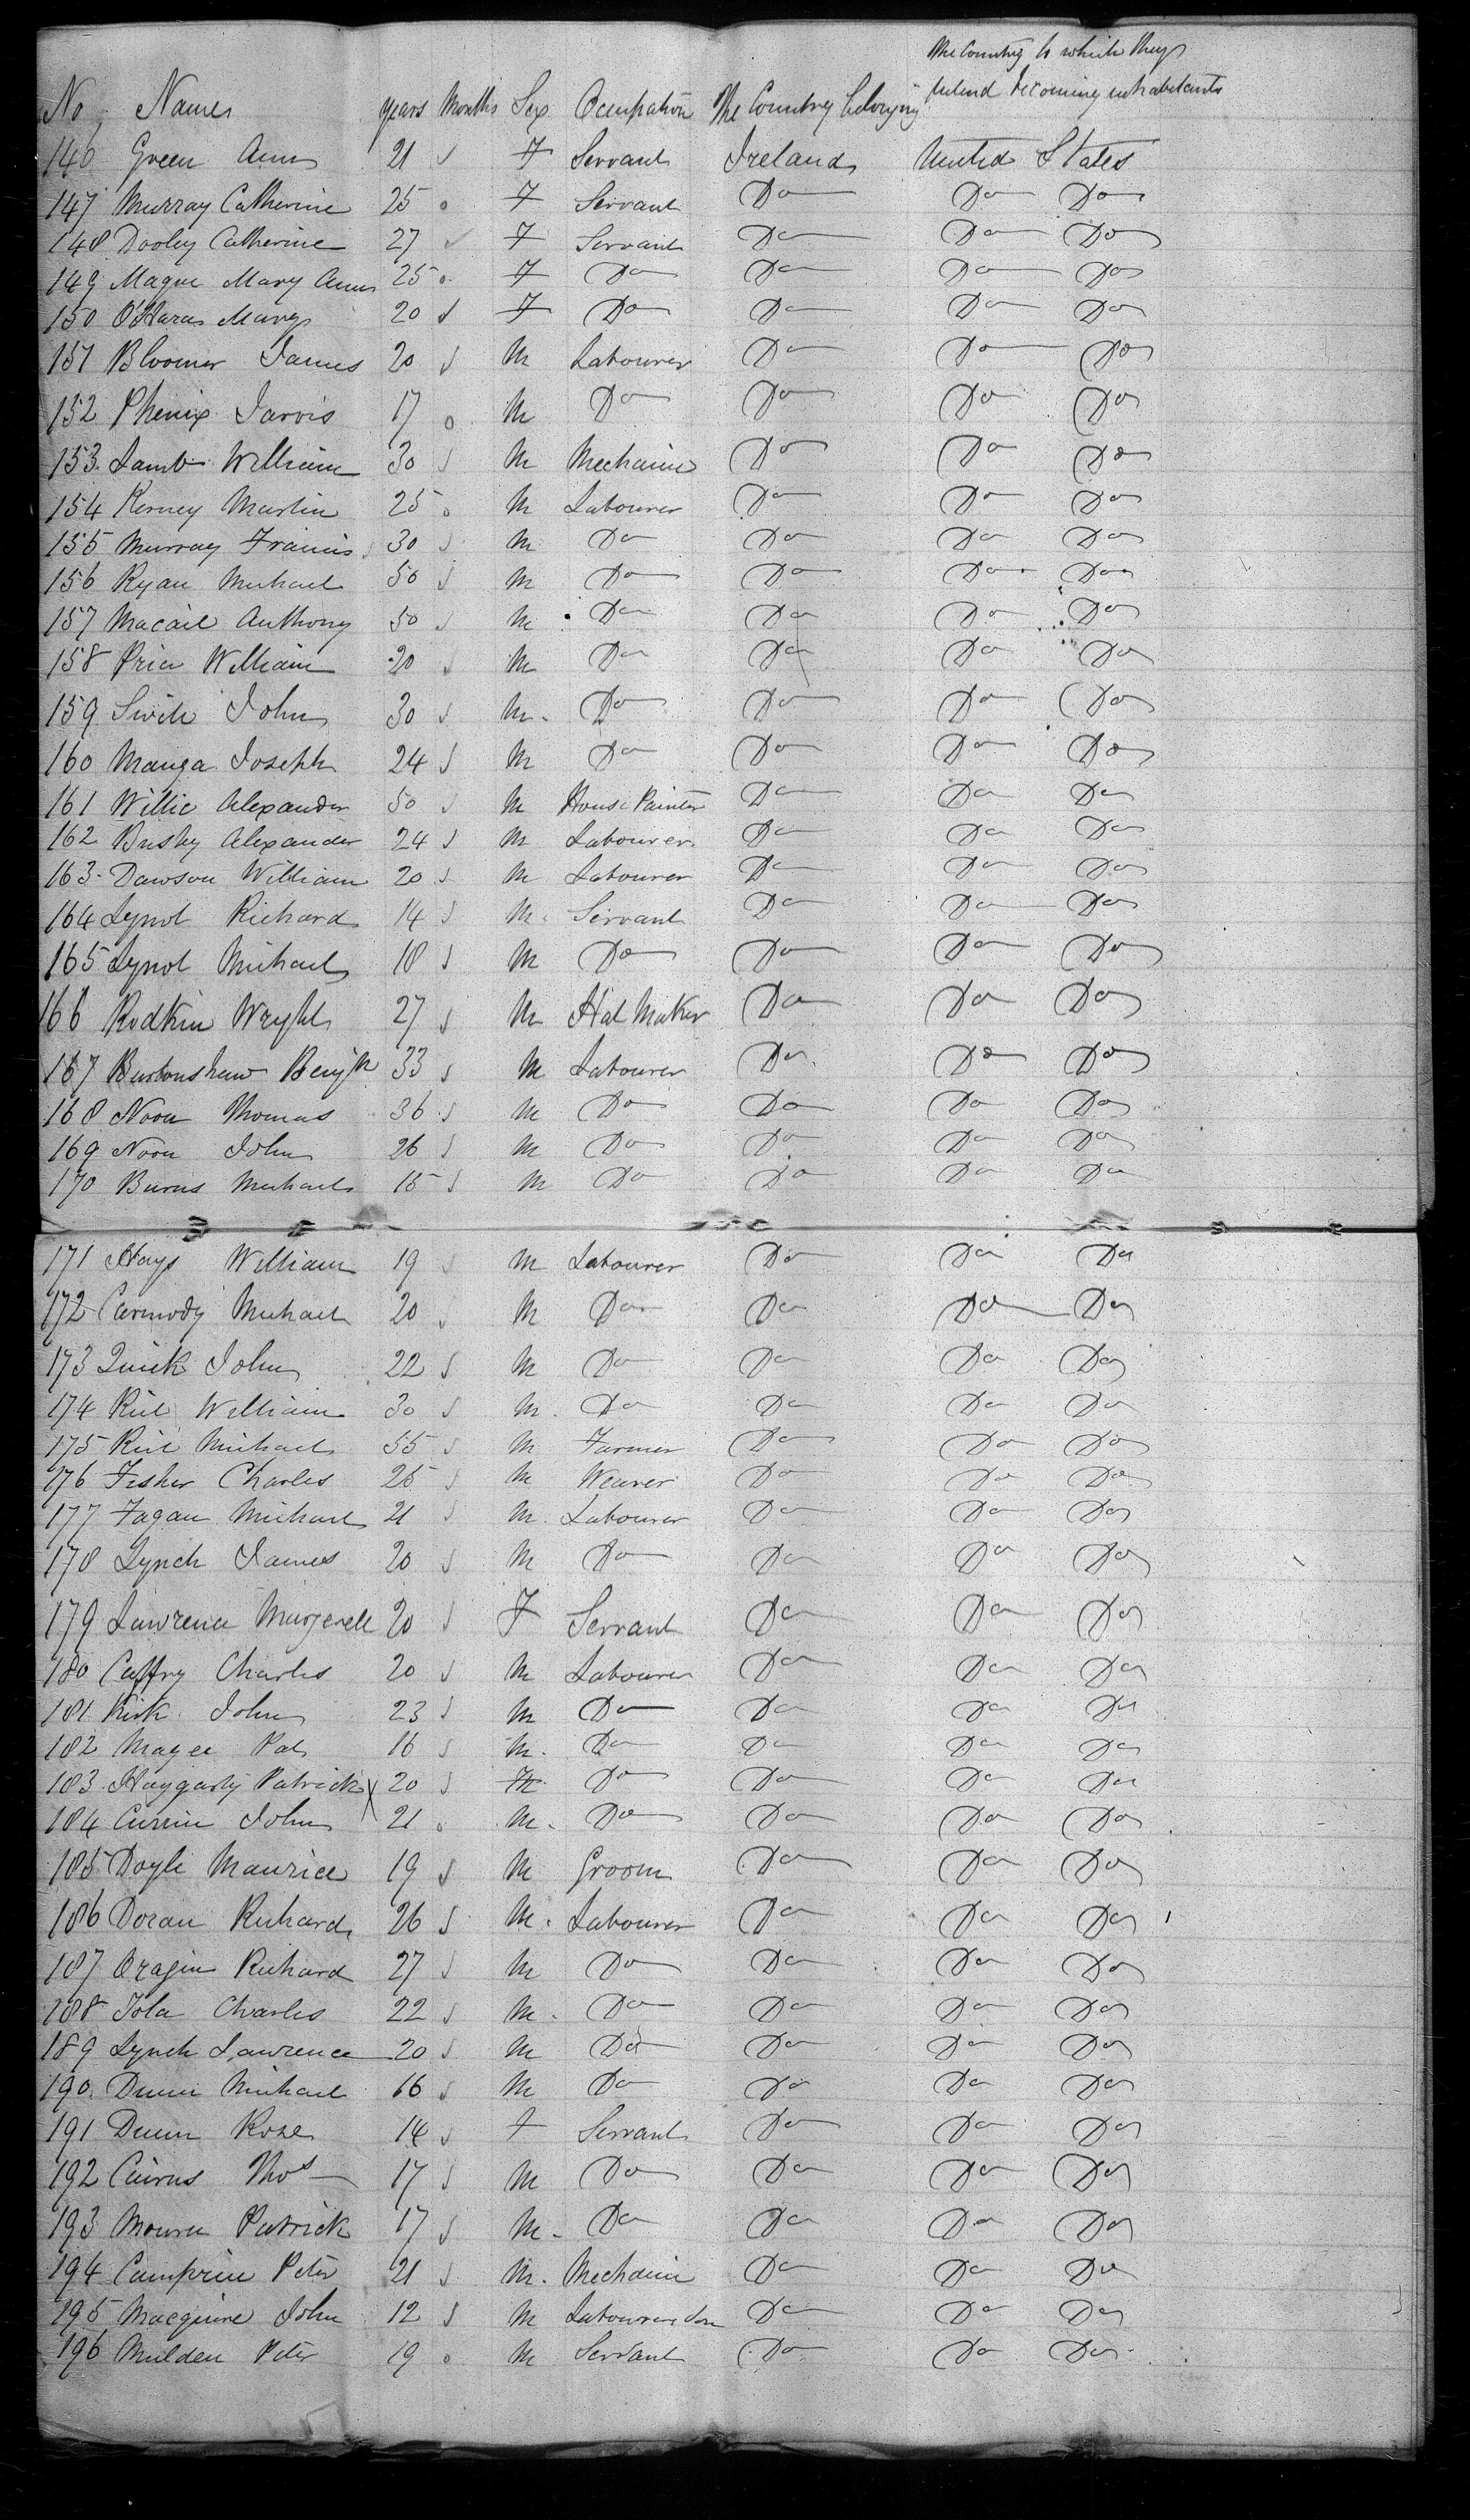 The Country to which they
No Names years Months Sex Occupation The Country belonging intend becoming inhabitants
146 Green Ann 21 F Servant Ireland United States
147 Murray Catherine 25 F Servant Do Do Do
148 Dooley Catherine 27 F Servant Do Do Do
149 Mague Mary Ann 25 F Do Do Do Do
150 O'Hara Mary 20 F Do Do Do Do
151 Bloomer James 20 M Labourer Do Do Do
152 Phenix Jarvis 17 M Do Do Do Do
153 Lamb William 30 M Mechanic Do Do Do
154 Kerney Martin 25 M Labourer Do Do Do
155 Murray Francis 30 M Do Do Do Do
156 Ryan Michael 50 M Do Do Do Do
157 Macail Anthony 50 M Do Do Do Do
158 Price William 20 M Do Do Do Do
159 John 30 M Do Do Do Do
160 Manga Joseph 24 M Do Do Do Do
161 Willie Alexander 50 M House Painter Do Do Do
162 Busby Alexander 24 M Labourer Do Do Do
163 Dawson William 20 M Labourer Do Do Do
164 Lynot Richard 14 M Servant Do Do Do
165 Lynot Michael 18 M Do Do Do Do
166 Rodkin Wright 27 M Hat Maker Do Do Do
167 Burtonshaw Benjn 33 M Labourer Do Do Do
168 Noon Thomas 36 M Do Do Do Do
169 Noon John 26 M Do Do Do Do
170 Burns Michael 15 M Do Do Do Do
171 Hays William 19 M Labourer Do Do Do
172 Carmody Michael 20 M Do Do Do Do
173 Quick John 22 M Do Do Do Do
174 Riel William 30 M Do Do Do Do
175 Riel Michael 55 M Farmer Do Do Do
176 Fisher Charles 25 M Weaver Do Do Do
177 Fagan Michael 21 M Labourer Do Do Do
178 Lynch James 20 M Do Do Do Do
179 Lawrence 20 F Servant Do Do Do
180 Caffry Charles 20 M Labourer Do Do Do
181 Kirk John 23 M Do Do Do Do
182 Magee Pat 16 M Do Do Do Do
183 Haggarty Patrick 20 M Do Do Do Do
184 Currin John 21 M Do Do Do Do
185 Doyle Maurice 19 M Groom Do Do Do
186 Doran Richard 26 M Labourer Do Do Do
187 Oragin Richard 27 M Do Do Do Do
188 Charles 22 M Do Do Do Do
189 Lynch Lawrence 20 M Do Do Do Do
190 Dunn Michael 16 M Do Do Do Do
191 Dunn Rose 14 F Servant Do Do Do
192 Cairns Thos 17 M Do Do Do Do
193 Patrick 17 M Do Do Do Do
194 Peter 21 M Mechanic Do Do Do
195 Macguire John 12 M Labourer Do Do Do
196 Mulden Peter 19 M Servant Do Do Do